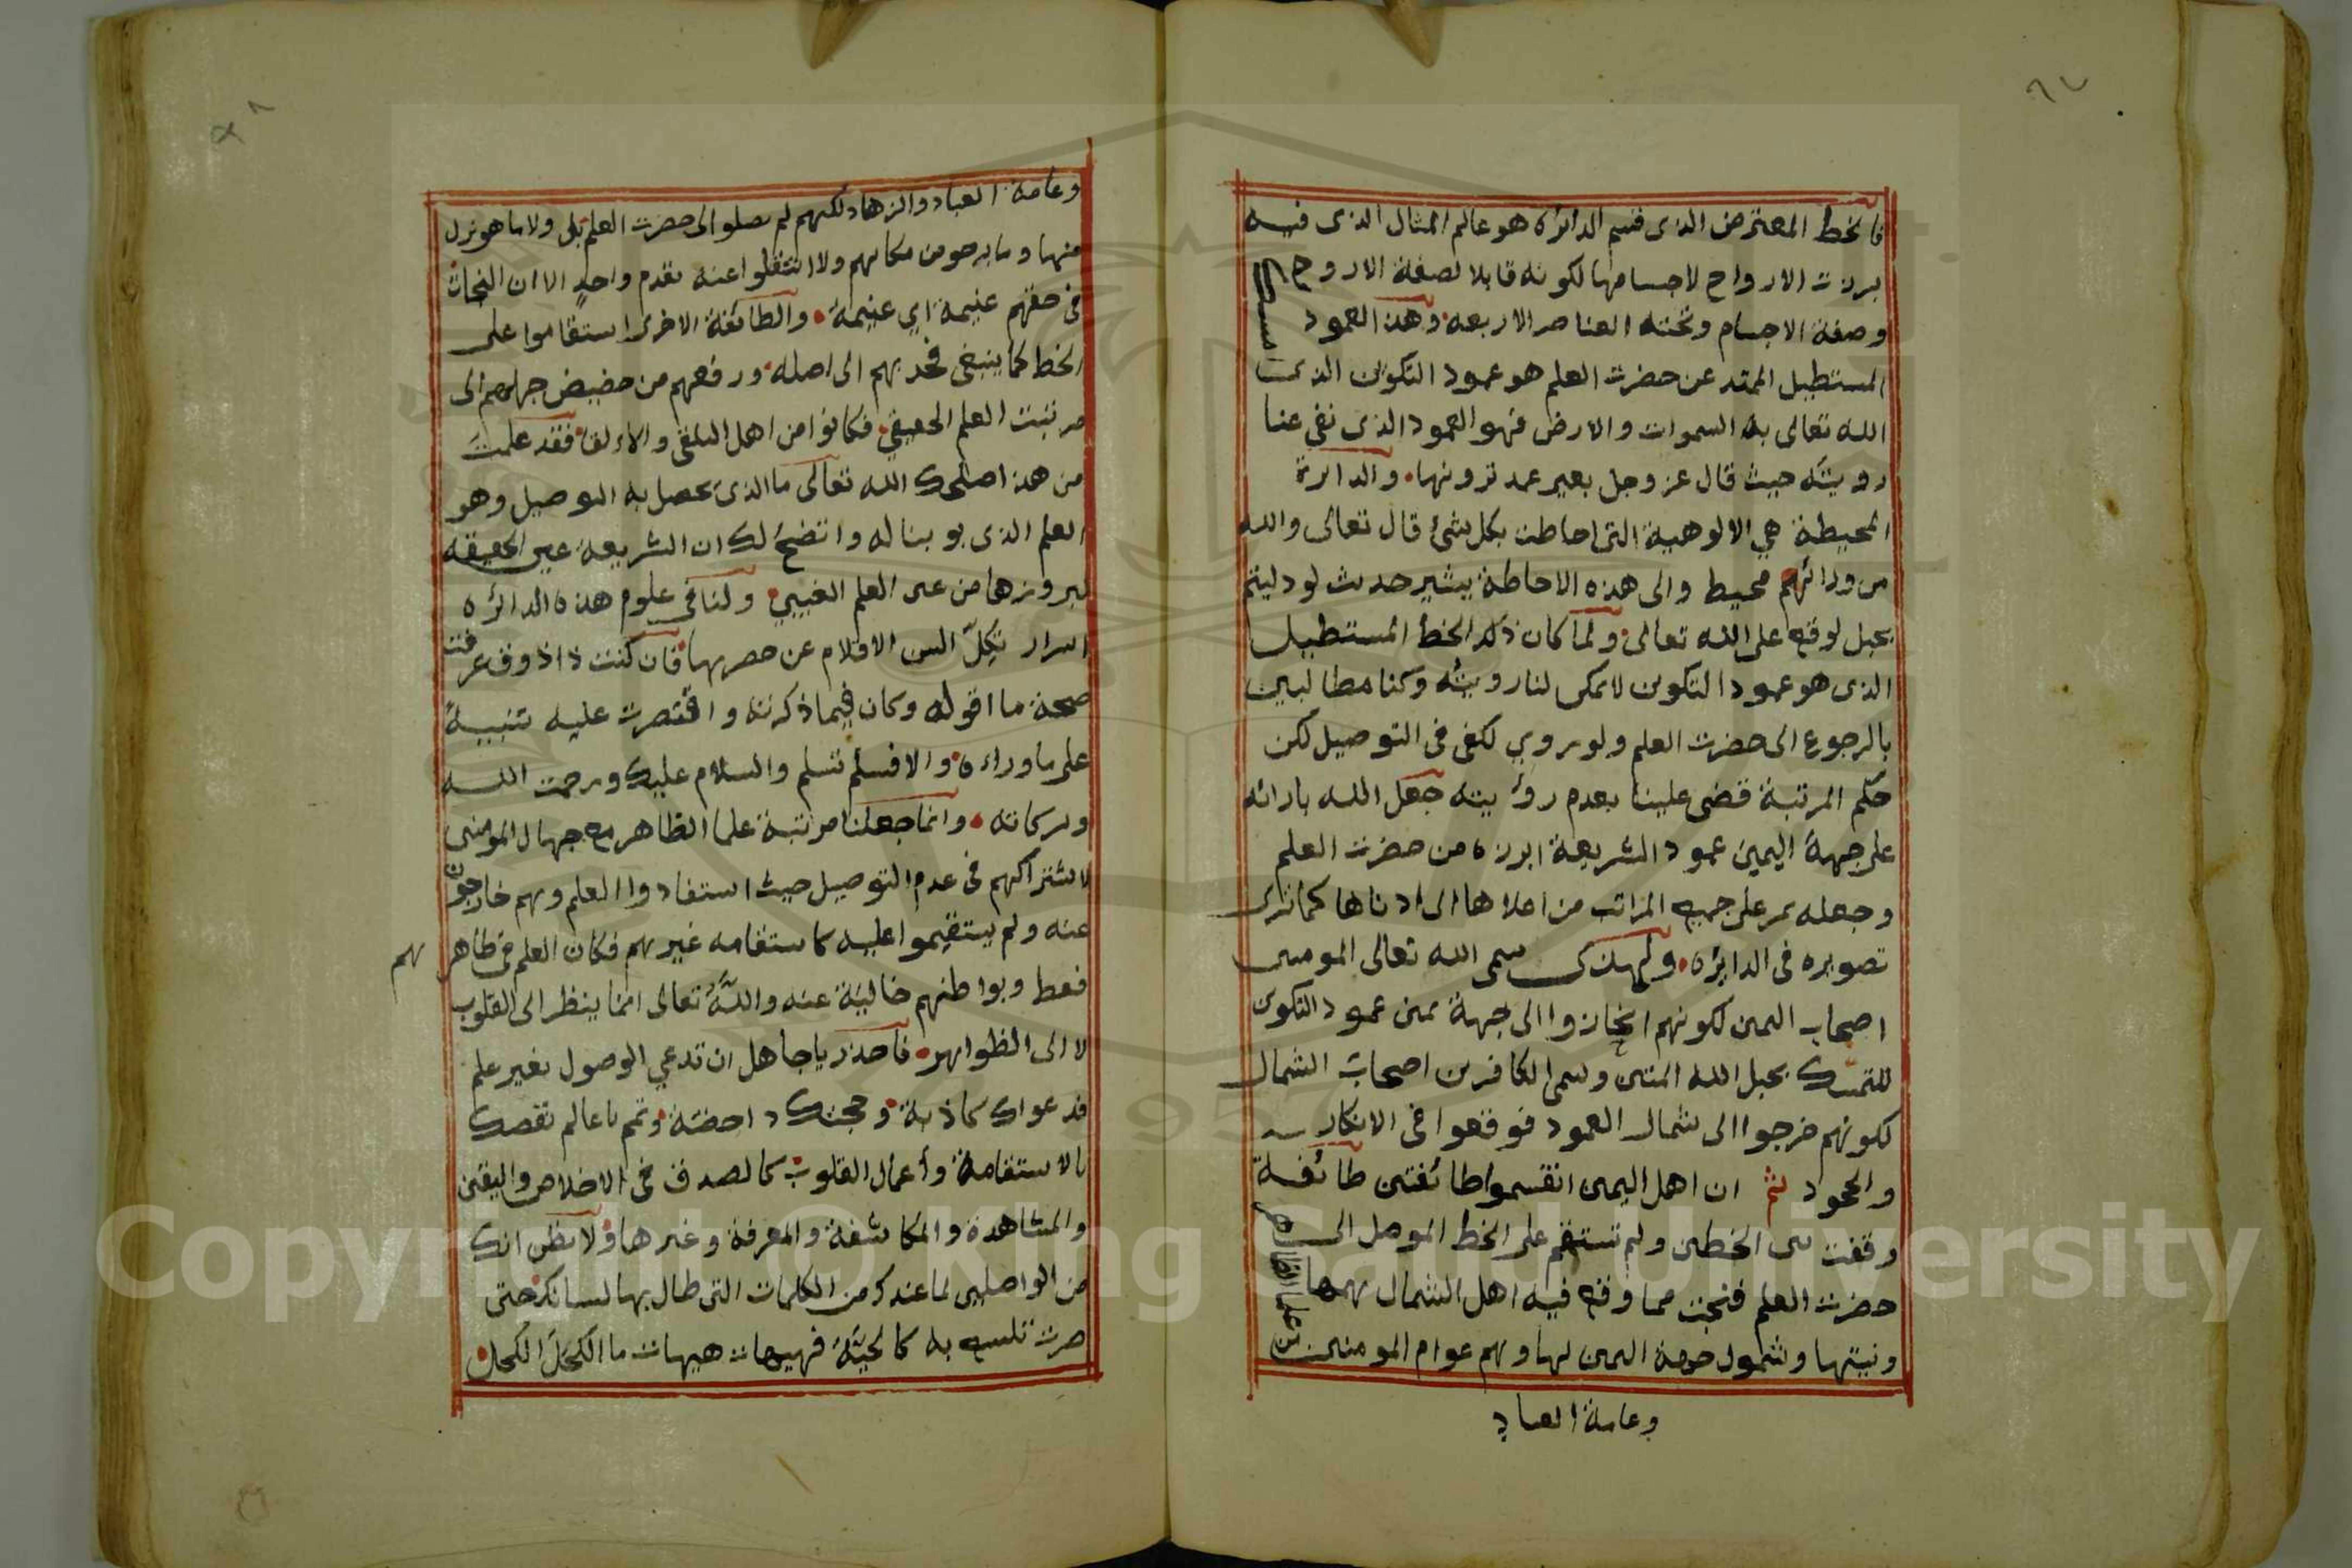 فالخط المعترض الذى قسم الدائرة هو عالم المثال الذى فيه
برزت الارواح لاجسامها لكونه قابلا لصفة الاروح
وصفة الاجسام وتحته العناصر الاربعه وهذا العمود
المستطيل الممتد عن حضرت العلم هو عمود التكوين الذى
الله تعالى به السموات والارض فهو العمود الذى نفى عنا
رويته حيث قال عز وجل بغير عمد ترونها والدايرة
المحيطة هي الالوهية التى احاطت بكل شئ قال تعالى والله
من ورائهم محيط والى هذه الاحاطة يشير حديث لو دليتم
بحبل لوقع على الله تعالى ولما كان ذلك الخط المستطيل
الذى هو عمود التكوين لا يمكن لنا رويته وكنا مطالبين
بالرجوع الى حضرت العلم ولو روي لكفى فى التوصيل لكن
حكم المرتبة قضى علينا بعدم روأيته جعل الله بازائه
على جهة اليمين عمود الشريعة ابرزه من حضرت العلم
وجعله يمر على جميع المراتب من اعلاها الى ادناها كما ترى
تصويره فى الدايره ولهذى سمى الله تعالى المومنين
اصحاب اليمين لكونهم انحازوا الى جهة يمين عمود التكوين
للتمسك بحبل الله المتين وسمى الكافرين اصحاب الشمال
لكونهم خرجوا الى شمال العمود فوقعوا فى الانكار
والجحود ثم ان اهل اليمين انقسموا طائفتين طائفة
وقفت بين الخطين ولم تستقم على الخط الموصل الى
حضرت العلم فنجت مما وقع فيه اهل الشمال بهمها
ونيتها وشمول جهة اليمين لها وهم عوام المومنين
من علما الظاهر
وعامة العباد
وعامة العباد والزهاد لكنهم لم يصلوا الى حضرت العلم بل ولا ما هو نزل
منها وما برحو من مكانهم ولا انتقلوا عنه بقدم واحد الا ان النجات
فى حقهم غنيمة اي غنيمة والطائفة الاخرى استقاموا على
الخط كما ينبغى فجذبهم الى اصله ورفعهم من حضيض جهلهم الى
مرتبت العلم الحقيقى فكانوا من اهل التلقى والالقا فقد علمت
من هذا اصلحك الله تعالى ما الذى يحصل به التوصيل وهو
العلم الذى بوبنا له واتضح لك ان الشريعة عين الحقيقه
لبروزها من عين العلم الغيبي ولنا فى علوم هذه الدائره
اسرار تكل السن الاقلام عن حصرها فان كنت ذا ذوق عرفت
صحة ما اقوله وكان فيما ذكرته واقتصرت عليه تنبيهً
على ما وراءه والا فسلم تسلم والسلام عليك ورحمت الله
وبركاته وانما جعلنا مرتبة علما الظاهر مع جهال المومنين
لاشتراكهم فى عدم التوصيل حيث استفادوا العلم وهم خارجون
عنه ولم يستقيموا عليه كاستقامه غيرهم فكان العلم فى ظاهرهم
فقط وبواطنهم خالية عنه والله تعالى انما ينظر الى القلوب
لا الى الظواهر فاحذر ياجاهل ان تدعي الوصول بغير علم
فدعواك كاذبة وحجتك داحضة وتمم ياعالم نقصك
بالاستقامة وأعمال القلوب كالصدق فى الاخلاص واليقين
والمشاهدة والمكاشفة والمعرفة وغيرها ولا تظن انك
من الواصلين لما عندك من الكلمات التى طال بها لسانك حتى
صرت تلسع به كالحيّة فهيهات هيهات ما الكَحَل الكحل